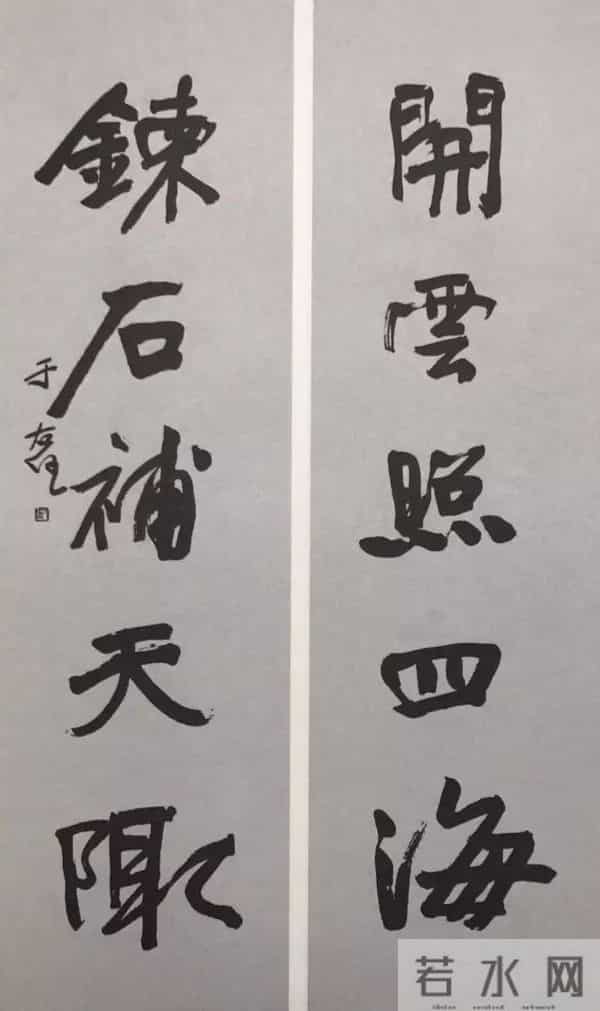 開雲照四海
鍊石補天陬
于右任
若水网